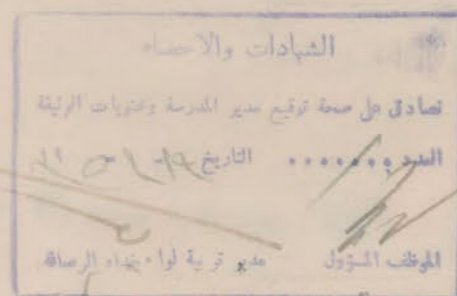 الشهادات والاحصاء
نصادق على صحة توقيع مدير المدرسة ومحتويات الوثيقة
العدد ....... التاريخ
الموظف المسؤول مدير تربية لواء بغداد الرصافة